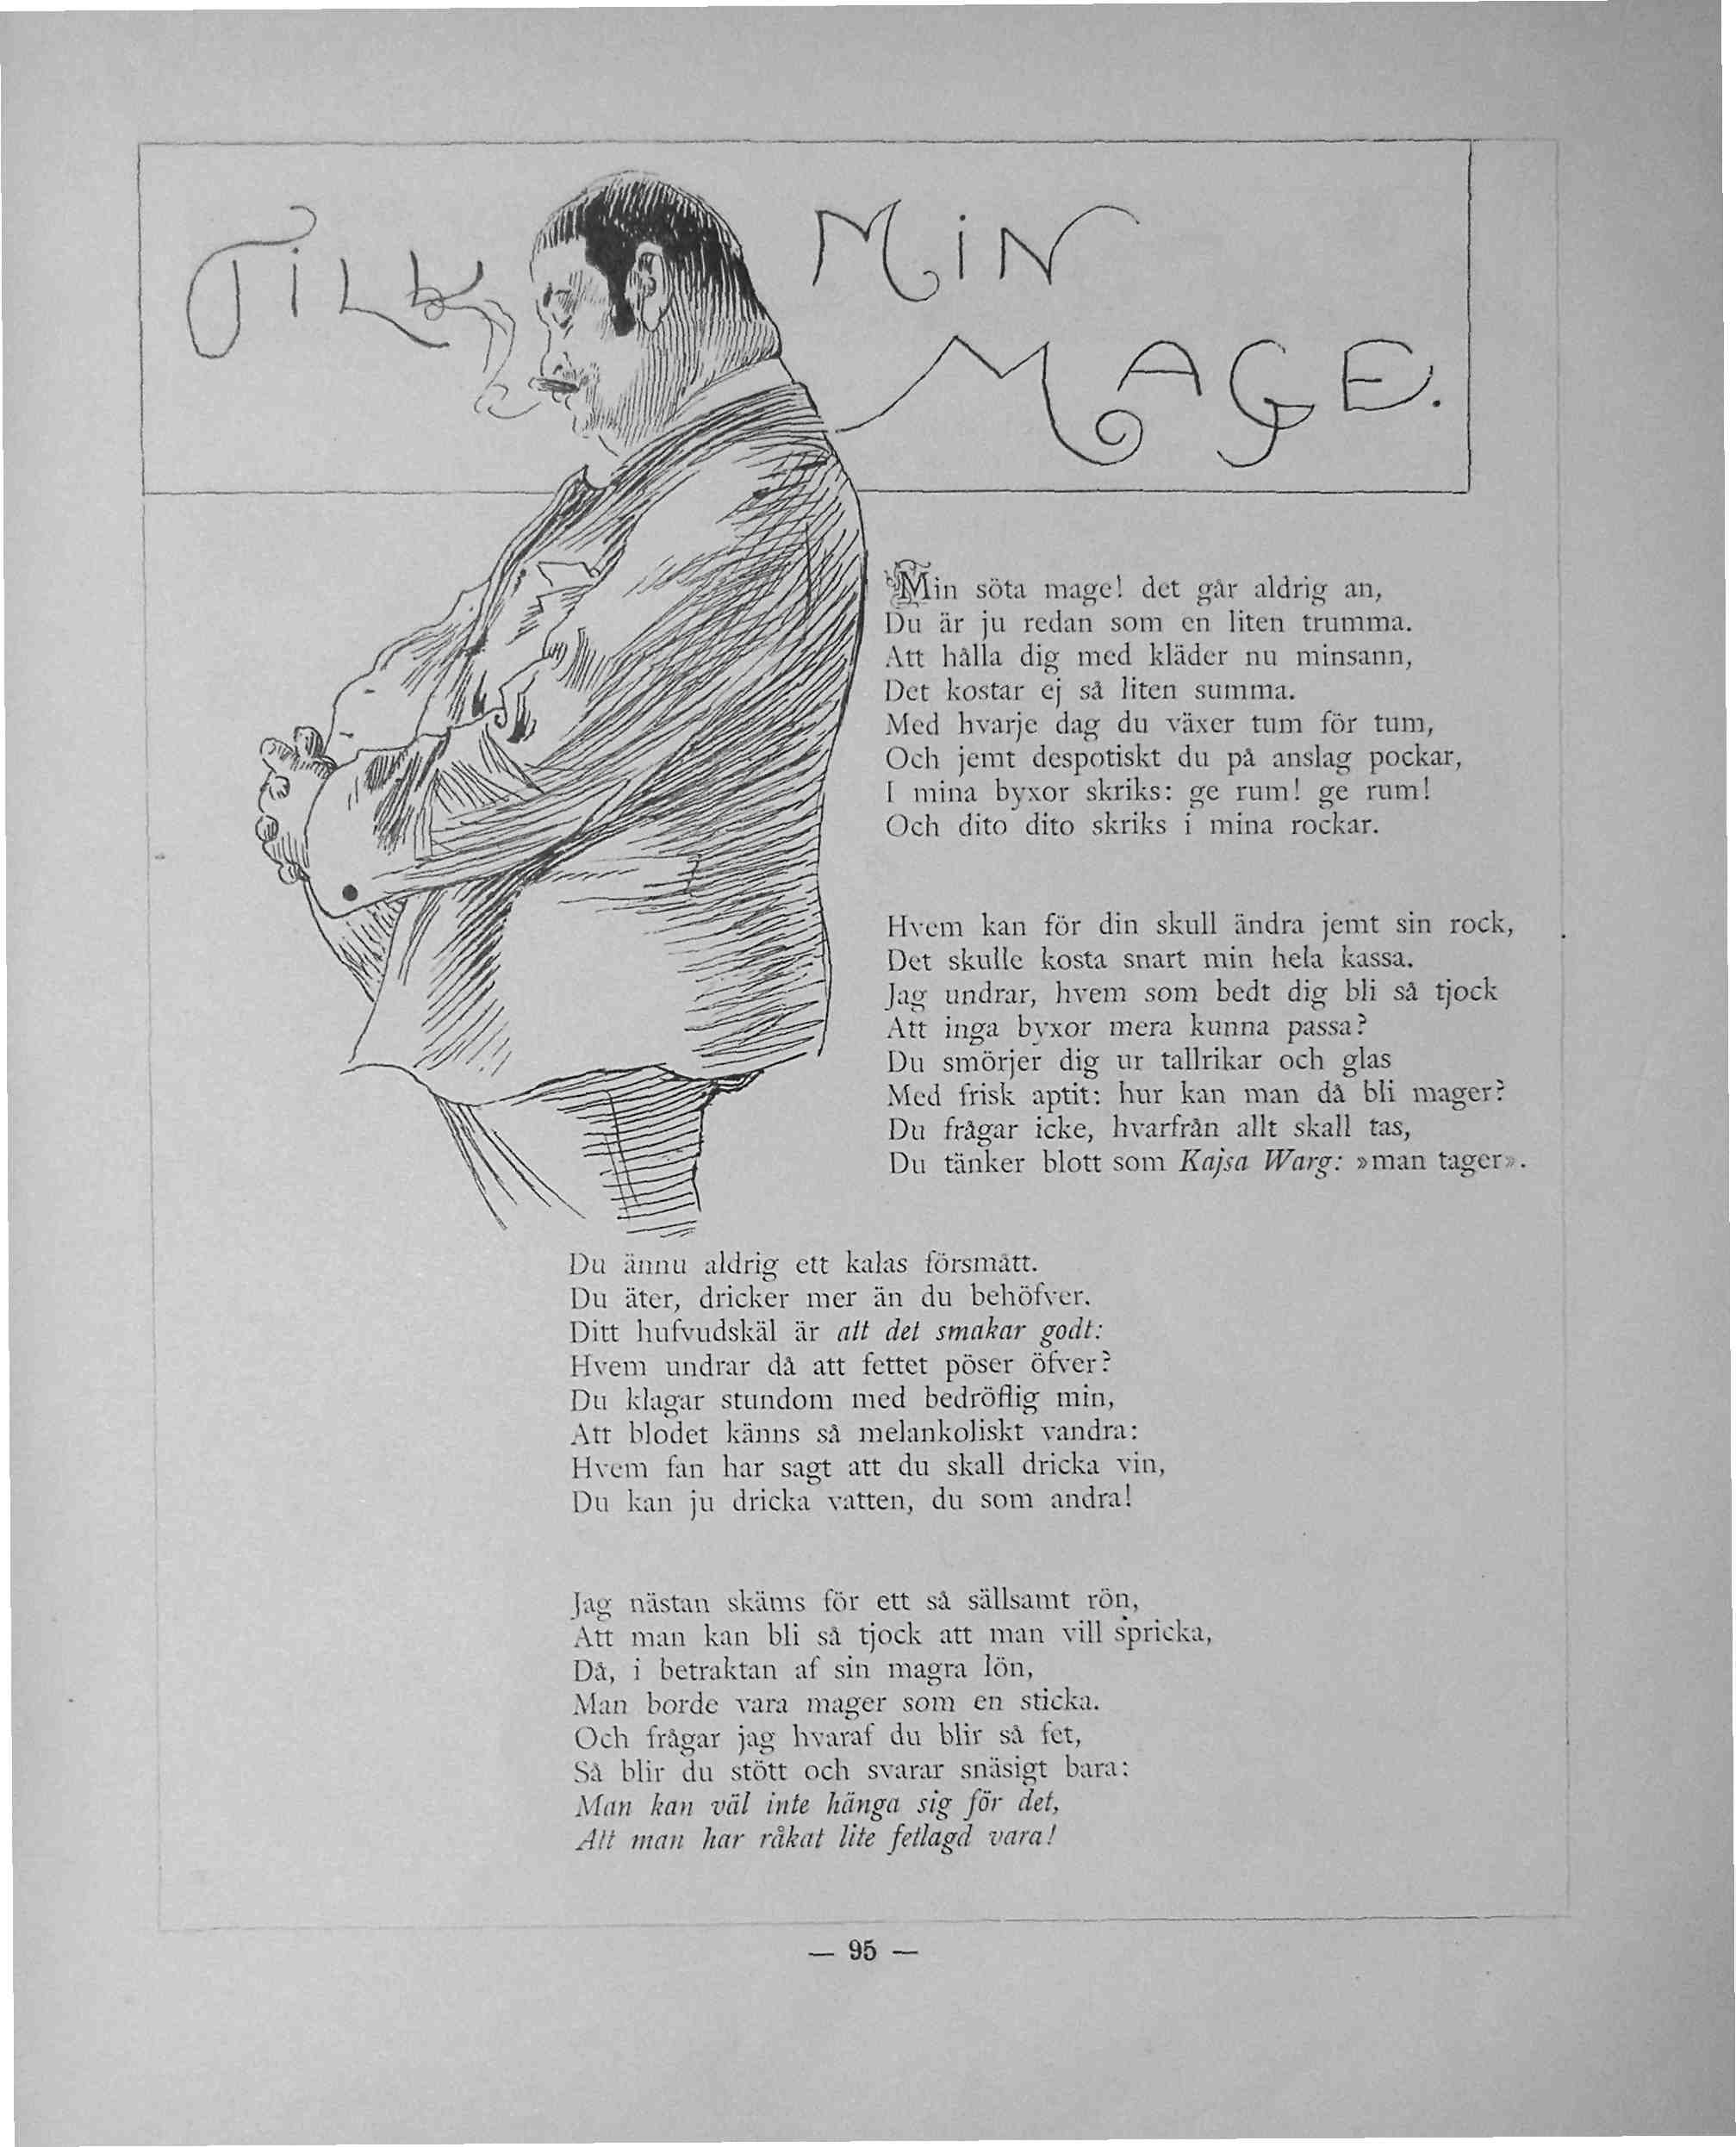 TILL MIN
MAGE.
Min söta mage! det går aldrig an,
Du är ju redan som en liten trumma.
Att hålla dig med kläder nu minsann,
Det kostar ej så liten summa.
Med hvarje dag du växer tum för tum,
Och jemt despotiskt du på anslag pockar,
I mina byxor skriks: ge rum! ge rum!
Och dito dito skriks i mina rockar.
Hvem kan för din skull ändra jemt sin rock,
Det skulle kosta snart min hela kassa.
Jag undrar, hvem som bedt dig bli så tjock
Att inga byxor mera kunna passa?
Du smörjer dig ur tallrikar och glas
Med frisk aptit: hur kan man då bli mager?
Du frågar icke, hvarfrån allt skall tas,
Du tänker blott som Kajsa Warg: »man tager».
Du ännu aldrig ett kalas försmått.
Du äter, dricker mer än du behöfver.
Ditt hufvudskäl är att det smakar godt:
Hvem undrar då att fettet pöser öfver?
Du klagar stundom med bedröflig min,
Att blodet känns så melankoliskt vandra:
Hvem fan har sagt att du skall dricka vin,
Du kan ju dricka vatten, du som andra!
Jag nästan skäms för ett så sällsamt rön,
Att man kan bli så tjock att man vill spricka,
Då, i betraktan af sin magra lön,
Man borde vara mager som en sticka.
Och frågar jag hvaraf du blir så fet,
Så blir du stött och svarar snäsigt bara:
Man kan väl inte hänga sig för det,
Att man har råkat lite fetlagd vara!
— 95 —